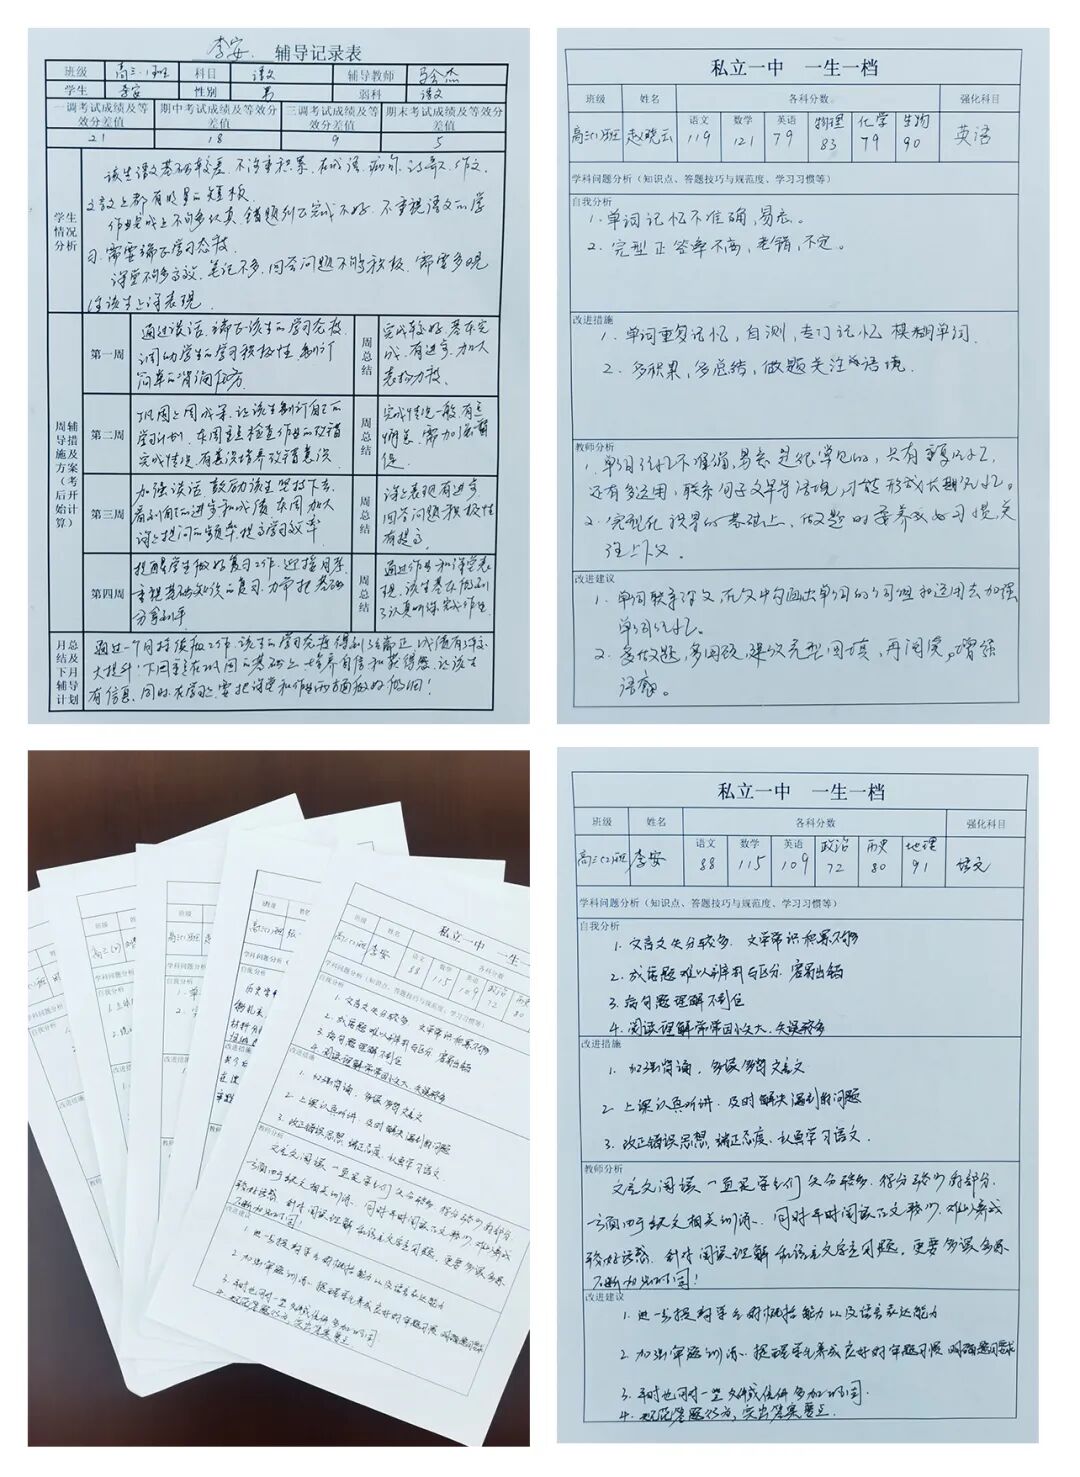 李安. 辅导记录表
班级 高三.1班 科目 语文 辅导教师
学生 李安 性别 男 弱科 语文
一调考试成绩及等效分差值 期中考试成绩及等效分差值 三调考试成绩及等效分差值 期末考试成绩及等效分差值
21 18 9 5
学生情况分析
该生语文基础较差、不注重积累、在成语、病句、诗歌、作文、
文言上都有明显的短板
作业完成上不够认真、错题订正完成不好、不重视语文的学
习.需要端正学习态度
课堂不够高效、笔记不多、回答问题不够积极、需要多观
注该生上课表现
周辅导措施及方案(考后开始计算)
第一周
通过谈话、端正该生的学习态度、
调动学生的学习积极性、制订
简单的背诵任务
周总结
完成较好、基本完
成、有进步、加大
表扬力度、
第二周
巩固上周成果、让该生制订自己的
学习计划、本周重点检查作业的改错
完成情况、有意识培养改错意识
周总结
完成情况一般、有些
懈怠、需加强督
促
第三周
加强谈话、鼓励该生坚持下去、
看到自己的进步和成绩、本周加大
课上提问的频率、提高学习效率
周总结
课上表现有进步、
回答问题积极性
有提高
第四周
提醒学生做好复习工作、迎接月考、
重视基础知识的复习、力争把基础
分拿到手
周总结
通过作业和课堂表
现、该生基本做到
了认真听课、完成作业
月总结及下月辅导计划
通过一个月持续做工作、该生的学习态度得到了端正、成绩有了较
大提升!下周重在巩固的基础上、培养自信和获得感、让该生
有信息、同时在学习上要把课堂和作业两方面做好做细!
私立一中 一生一档
班级 姓名 各科分数 强化科目
语文 数学 英语 物理 化学 生物
高三(1)班 赵晓云 119 121 79 83 79 90 英语
学科问题分析(知识点、答题技巧与规范度、学习习惯等)
自我分析
1. 单词记忆不准确,易忘。
2. 完型正答率不高,老错,不定。
改进措施
1. 单词重复记忆,自测,专门记忆模糊单词.
2. 多积累,多总结,做题关注语境.
教师分析
1. 单词记忆不准确,易忘是很常见的,只有重复记忆,
还有多运用,联系句子文章等语境,才能形成长期记忆。
2. 完型在积累的基础上,做题时要养成好习惯,关
注上下文.
改进建议
1. 单词联系课文,在文中勾画出单词的词组和运用去加强
单词记忆。
2. 多做题,多回顾,建议完型回填,再阅读,增强
语感。
私立一中 一生一档
班级 姓名 各科分数
学科问题分析(知识点、答题技巧与规范度、学习习惯等)
自我分析
改进措施
教师分析
改进建议
私立一中 一生一档
班级 姓名 各科分数 强化科目
语文 数学 英语 政治 历史 地理
高三(2)班 李安 88 115 109 72 80 91 语文
学科问题分析(知识点、答题技巧与规范度、学习习惯等)
自我分析
1. 文言文失分较多. 文学常识积累不够
2. 成语题难以辨析与区分. 容易出错
3. 病句题理解不到位
4. 阅读理解常常因小失大、失误较多
改进措施
1. 加强背诵,多读多背文言文
2. 上课认真听讲.及时解决遇到的问题
3. 改正错误思想,端正态度、认真学习语文.
教师分析
文言文阅读一直是学生们失分较多,得分较少的部分.
一方面由于缺乏相关训练、同时平时阅读古文较少,难以养成
较好语感.针对阅读理解和语言文字运用问题,更要多读多练
不断加以巩固!
改进建议
1. 进一步提升学生的概括能力以及语言表达能力
2. 加强审题训练、提醒学生养成良好的审题习惯 明确题目要求
3. 平时也可对一些文体或佳作多加以巩固.
4. 规范答题行为,突出答案要点.